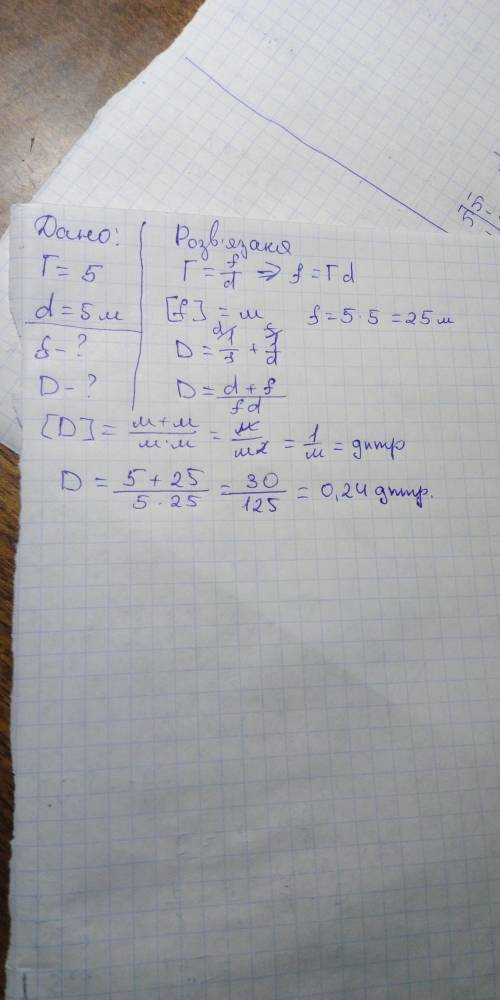 Дано:
Г = 5
d = 5 м
f - ?
D - ?
Розв'язаня
Г = f/d => f = Г d
[f] = м f = 5 · 5 = 25 м
D = 1/f + 1/d
D = d + f / f d
[D] = м + м / м · м = м / м2 = 1/м = дптр
D = 5 + 25 / 5 · 25 = 30 / 125 = 0,24 дптр.